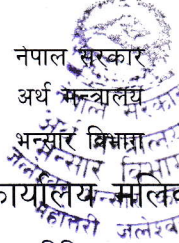 नेपाल सरकार
अर्थ मन्त्रालय
भन्सार विभाग
कार्यालय मलिव